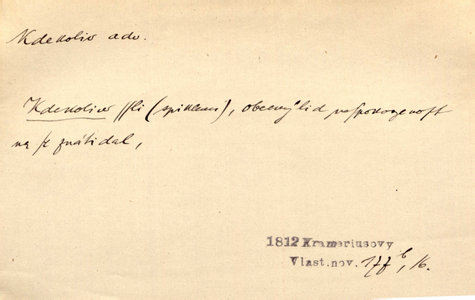 Kdekoliv adv.
Kdekoliv ſſli (spiklenci), obecný lid neſpokogenoſt
na ſe znáti dal,
1812 Krameriusovy
Vlast.nov. 177b, 16.